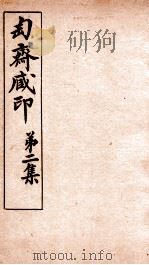 匋齋臧印
第二集
mtoou.info